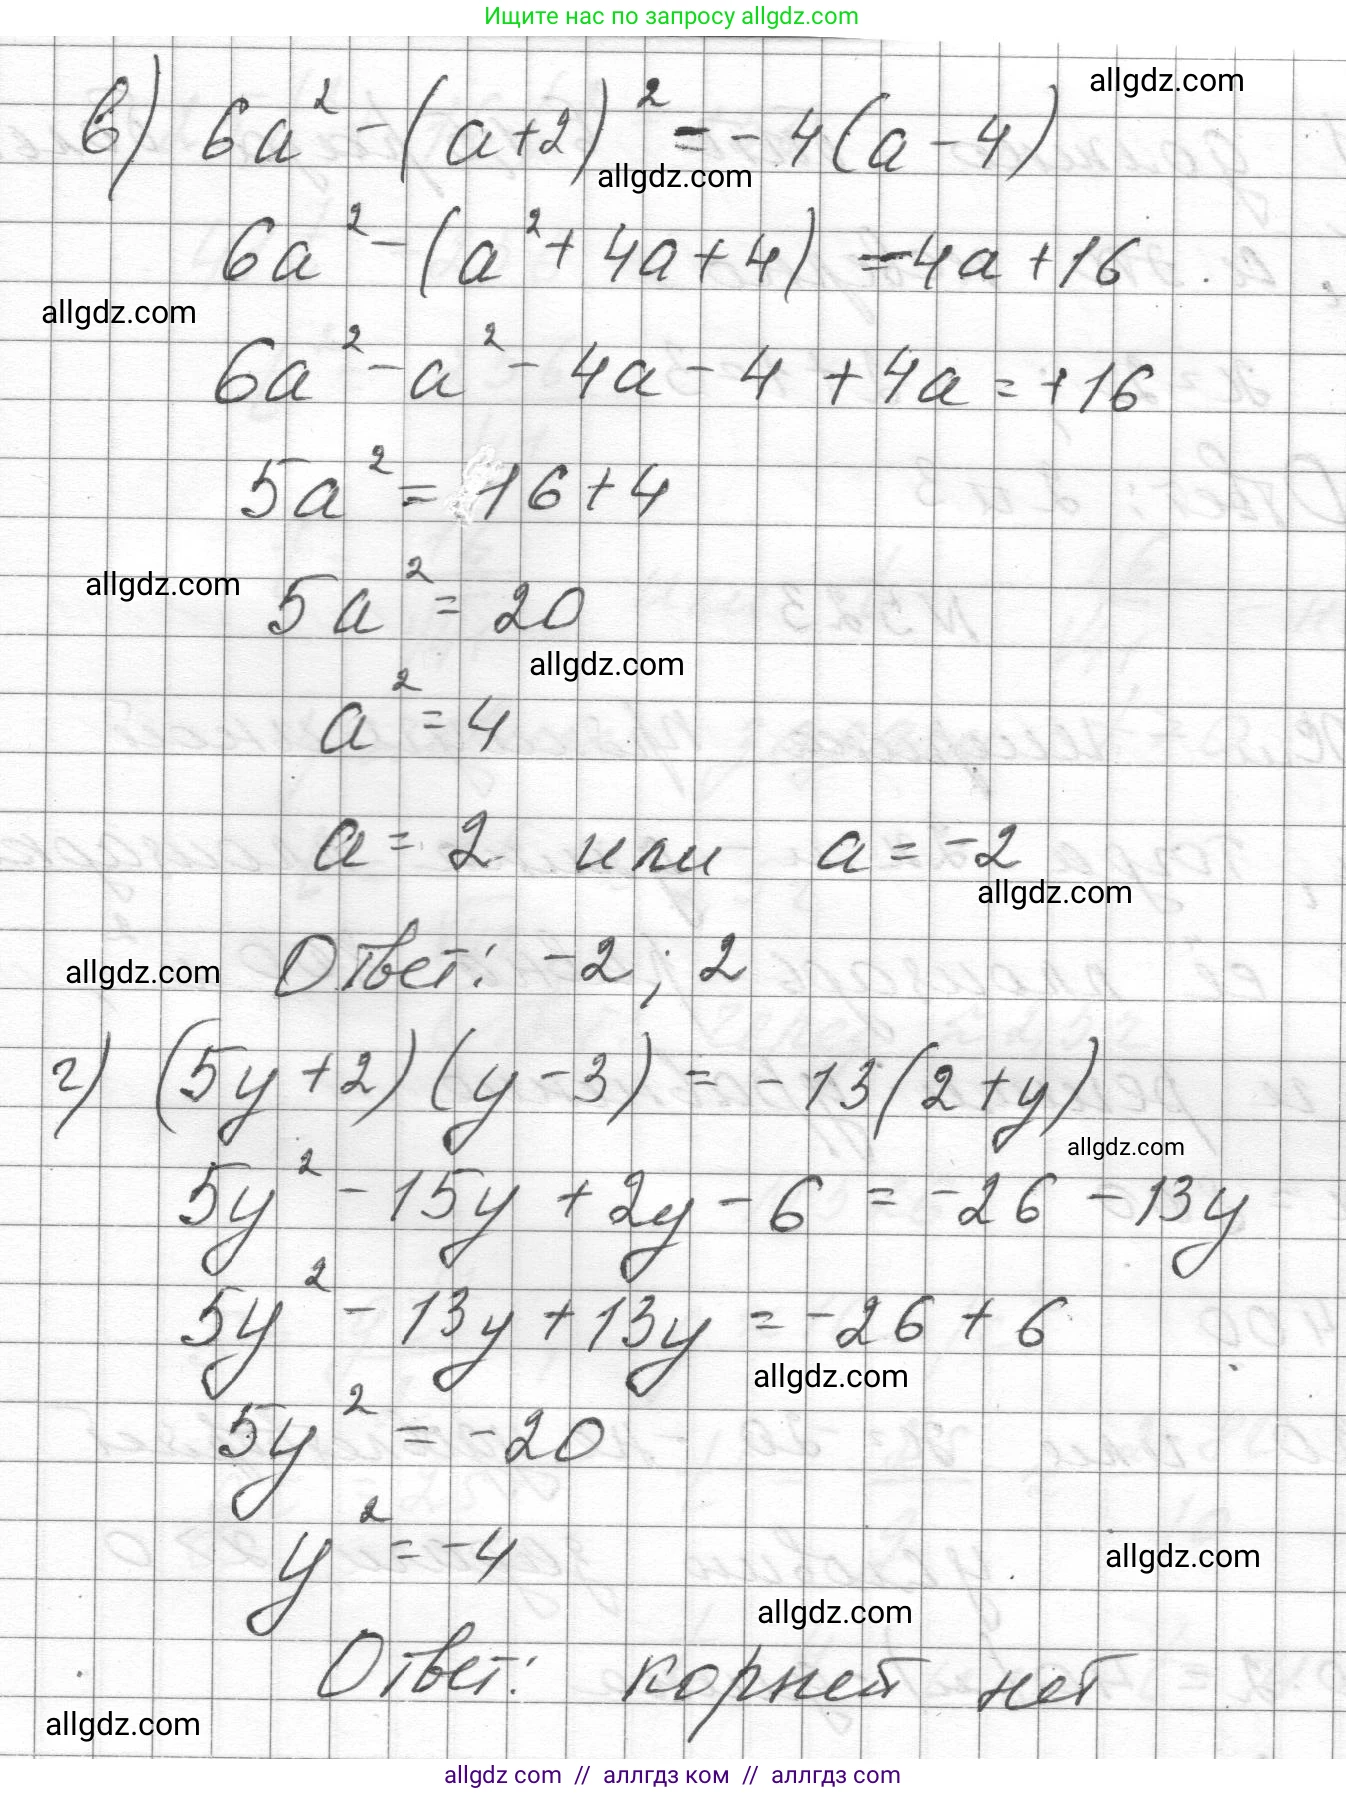 Ищите нас по запросу allgdz.com
allgdz.com
в) 6a² - (a+2)² = - 4(a - 4)
allgdz.com
6a² - (a² + 4a + 4) = -4a + 16
allgdz.com
6a² - a² - 4a - 4 + 4a = +16
5a² = 16 + 4
allgdz.com
5a² = 20
allgdz.com
a² = 4
a = 2 или a = -2
allgdz.com
Ответ: -2 ; 2
allgdz.com
г) (5y + 2) (y - 3) = - 13 (2 + y)
allgdz.com
5y² - 15y + 2y - 6 = -26 - 13y
5y² - 13y + 13y = -26 + 6
allgdz.com
5y² = -20
y² = -4
allgdz.com
allgdz.com
Ответ: корней нет
allgdz.com
allgdz com // аллгдз ком // аллгтдз com